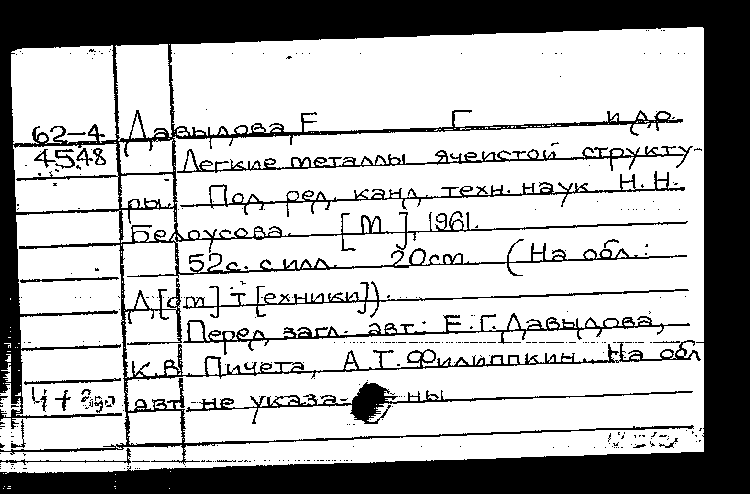 62-4 Давыдова, Е Г и др.
4548 Легкие металлы ячеистой структу-
ры. Под ред. канд. техн. наук Н.Н.
Белоусова. [М.], 1961.
52с. с илл. 20см. (На обл.:
Д[ом] т[ехники]).
Перед загл. авт.: Е.Г. Давыдова,
К.В. Пичета, А.Т. Филиппкин. На обл
4 + авт. не указа- ны